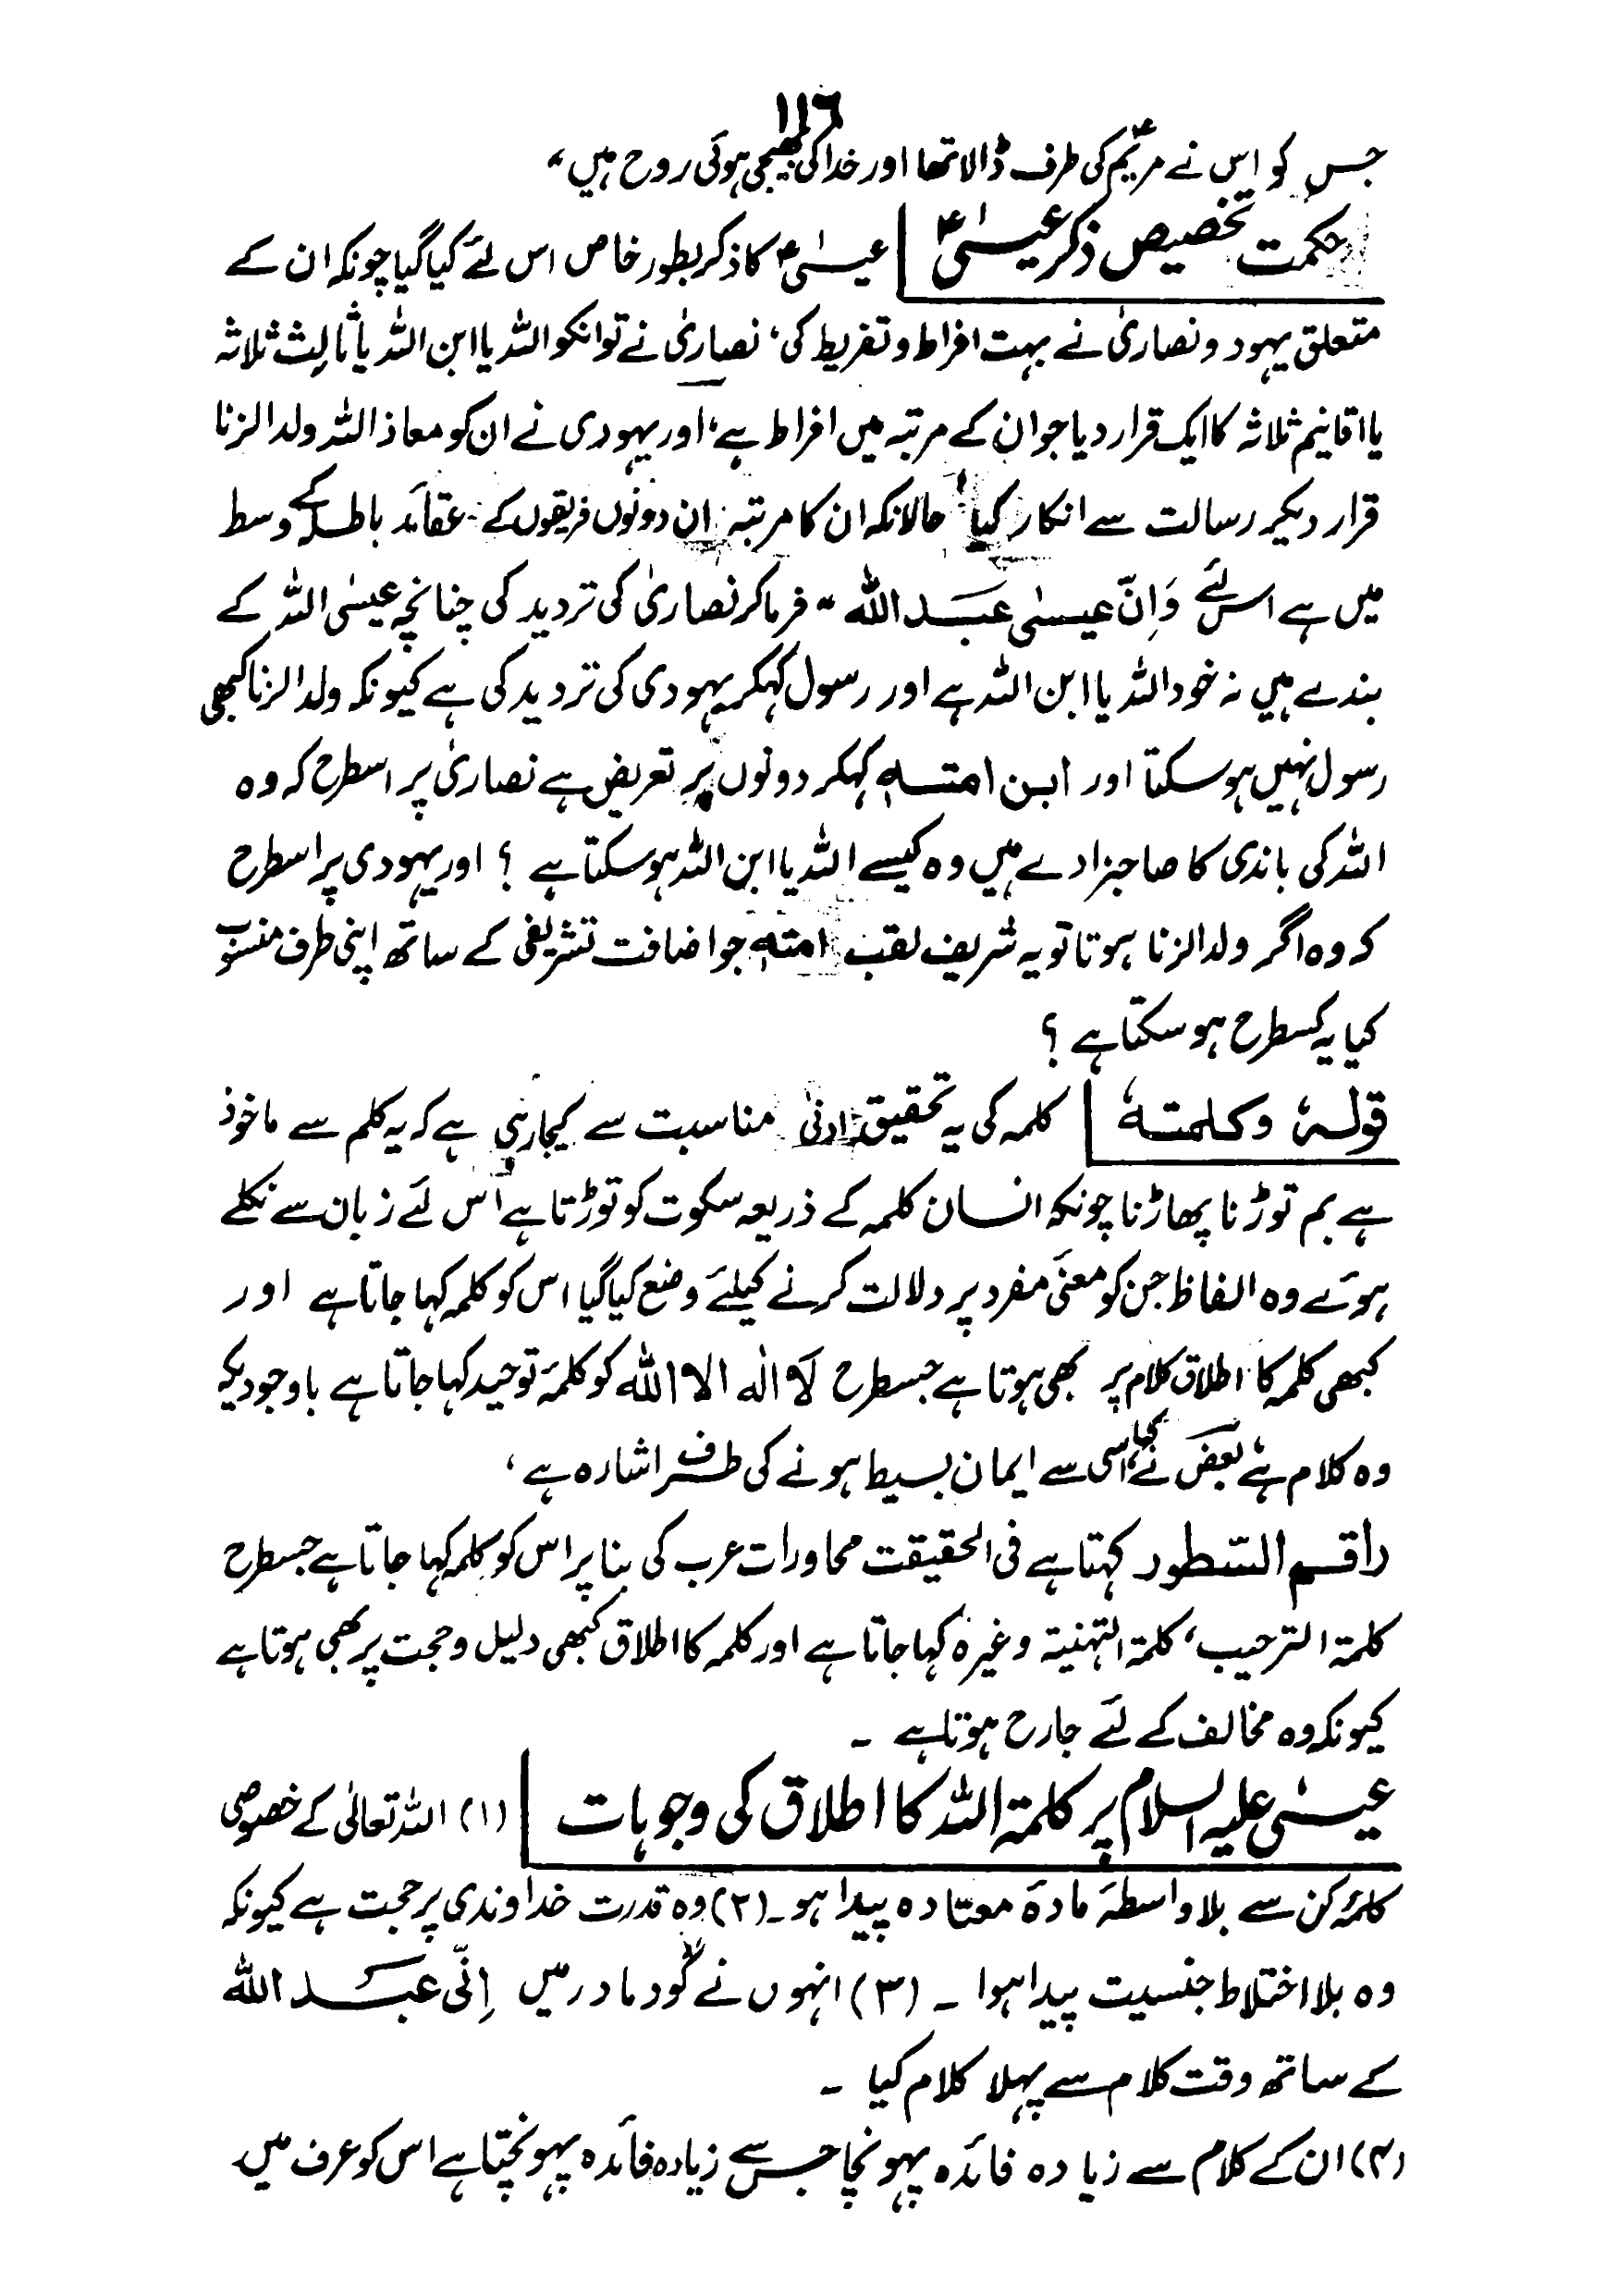 ۱۱۶
جس کو اس نے مریمؑ کی طرف ڈالا تھا اور خدا کی بھیجی ہوئی روح ہیں "
حکمت تخصیص ذکر عیسیٰؑ | عیسیٰؑ کا ذکر بطور خاص اس لئے کیا گیا چونکہ ان کے
متعلق یہود و نصاریٰ نے بہت افراط و تفریط کی، نصاریٰ نے تو انکو اللہ یا ابن اللہ یا ثالث ثلاثہ
یا اقانیم ثلاثہ کا ایک قرار دیا جو ان کے مرتبہ میں افراط ہے، اور یہودی نے ان کو معاذ اللہ ولد الزنا
قرار دیکر رسالت سے انکار کیا، حالانکہ ان کا مرتبہ ان دونوں فریقوں کے عقائد باطلہ کے وسط
میں ہے اس لئے وَاِنّ عیسیٰ عَبد اللہ " فرما کر نصاریٰ کی تردید کی چنانچہ عیسیٰ اللہ کے
بندے ہیں نہ خود اللہ یا ابن اللہ ہے اور رسول کہکر یہودی کی تردید کی ہے کیونکہ ولد الزنا کبھی
رسول نہیں ہو سکتا اور ابن امتہ کہکر دونوں پر تعریض ہے نصاریٰ پر اسطرح کہ وہ
اللہ کی باندی کا صاحبزادے ہیں وہ کیسے اللہ یا ابن اللہ ہو سکتا ہے ؟ اور یہودی پر اسطرح
کہ وہ اگر ولد الزنا ہوتا تو یہ شریف لقب امتہ جو اضافت تشریفی کے ساتھ اپنی طرف منسوب
کیا یہ کسطرح ہو سکتا ہے ؟
قولہٗ وکلمتہٗ | کلمہ کی یہ تحقیق ادنیٰ مناسبت سے کیجارہی ہے کہ یہ کلم سے ماخوذ
ہے بم توڑنا پھاڑنا چونکہ انسان کلمہ کے ذریعہ سکوت کو توڑتا ہے اس لئے زبان سے نکلے
ہوئے وہ الفاظ جن کو معنیٔ مفرد پر دلالت کرنے کیلئے وضع کیا گیا اس کو کلمہ کہا جاتا ہے اور
کبھی کلمہ کا اطلاق کلام پر بھی ہوتا ہے جسطرح لَا الٰہ الا اللہ کو کلمۂ توحید کہا جاتا ہے باوجودیکہ
وہ کلام ہے، بعض نے کہا اسی سے ایمان بسیط ہونے کی طرف اشارہ ہے،
راقم السّطور کہتا ہے فی الحقیقت محاورات عرب کی بنا پر اس کو کلمہ کہا جاتا ہے جسطرح
کلمۃ الترحیب، کلمۃ التہنیۃ وغیرہ کہا جاتا ہے اور کلمہ کا اطلاق کبھی دلیل و حجت پر بھی ہوتا ہے
کیونکہ وہ مخالف کے لئے جارح ہوتا ہے ۔
عیسیٰ علیہ السلام پر کلمۃ اللہ کا اطلاق کی وجوہات | (۱) اللہ تعالیٰ کے خصوصی
کلمۂ کن سے بلا واسطۂ مادۂ معتادہ پیدا ہو۔ (۲) وہ قدرت خداوندی پر حجت ہے کیونکہ
وہ بلا اختلاط جنسیت پیدا ہوا ۔ (۳) انہوں نے گود مادر میں اِنّی عَبد اللہ
کے ساتھ وقت کلام سے پہلا کلام کیا ۔
(۴) ان کے کلام سے زیادہ فائدہ پہونچا جس سے زیادہ فائدہ پہونچتا ہے اس کو عرف میں